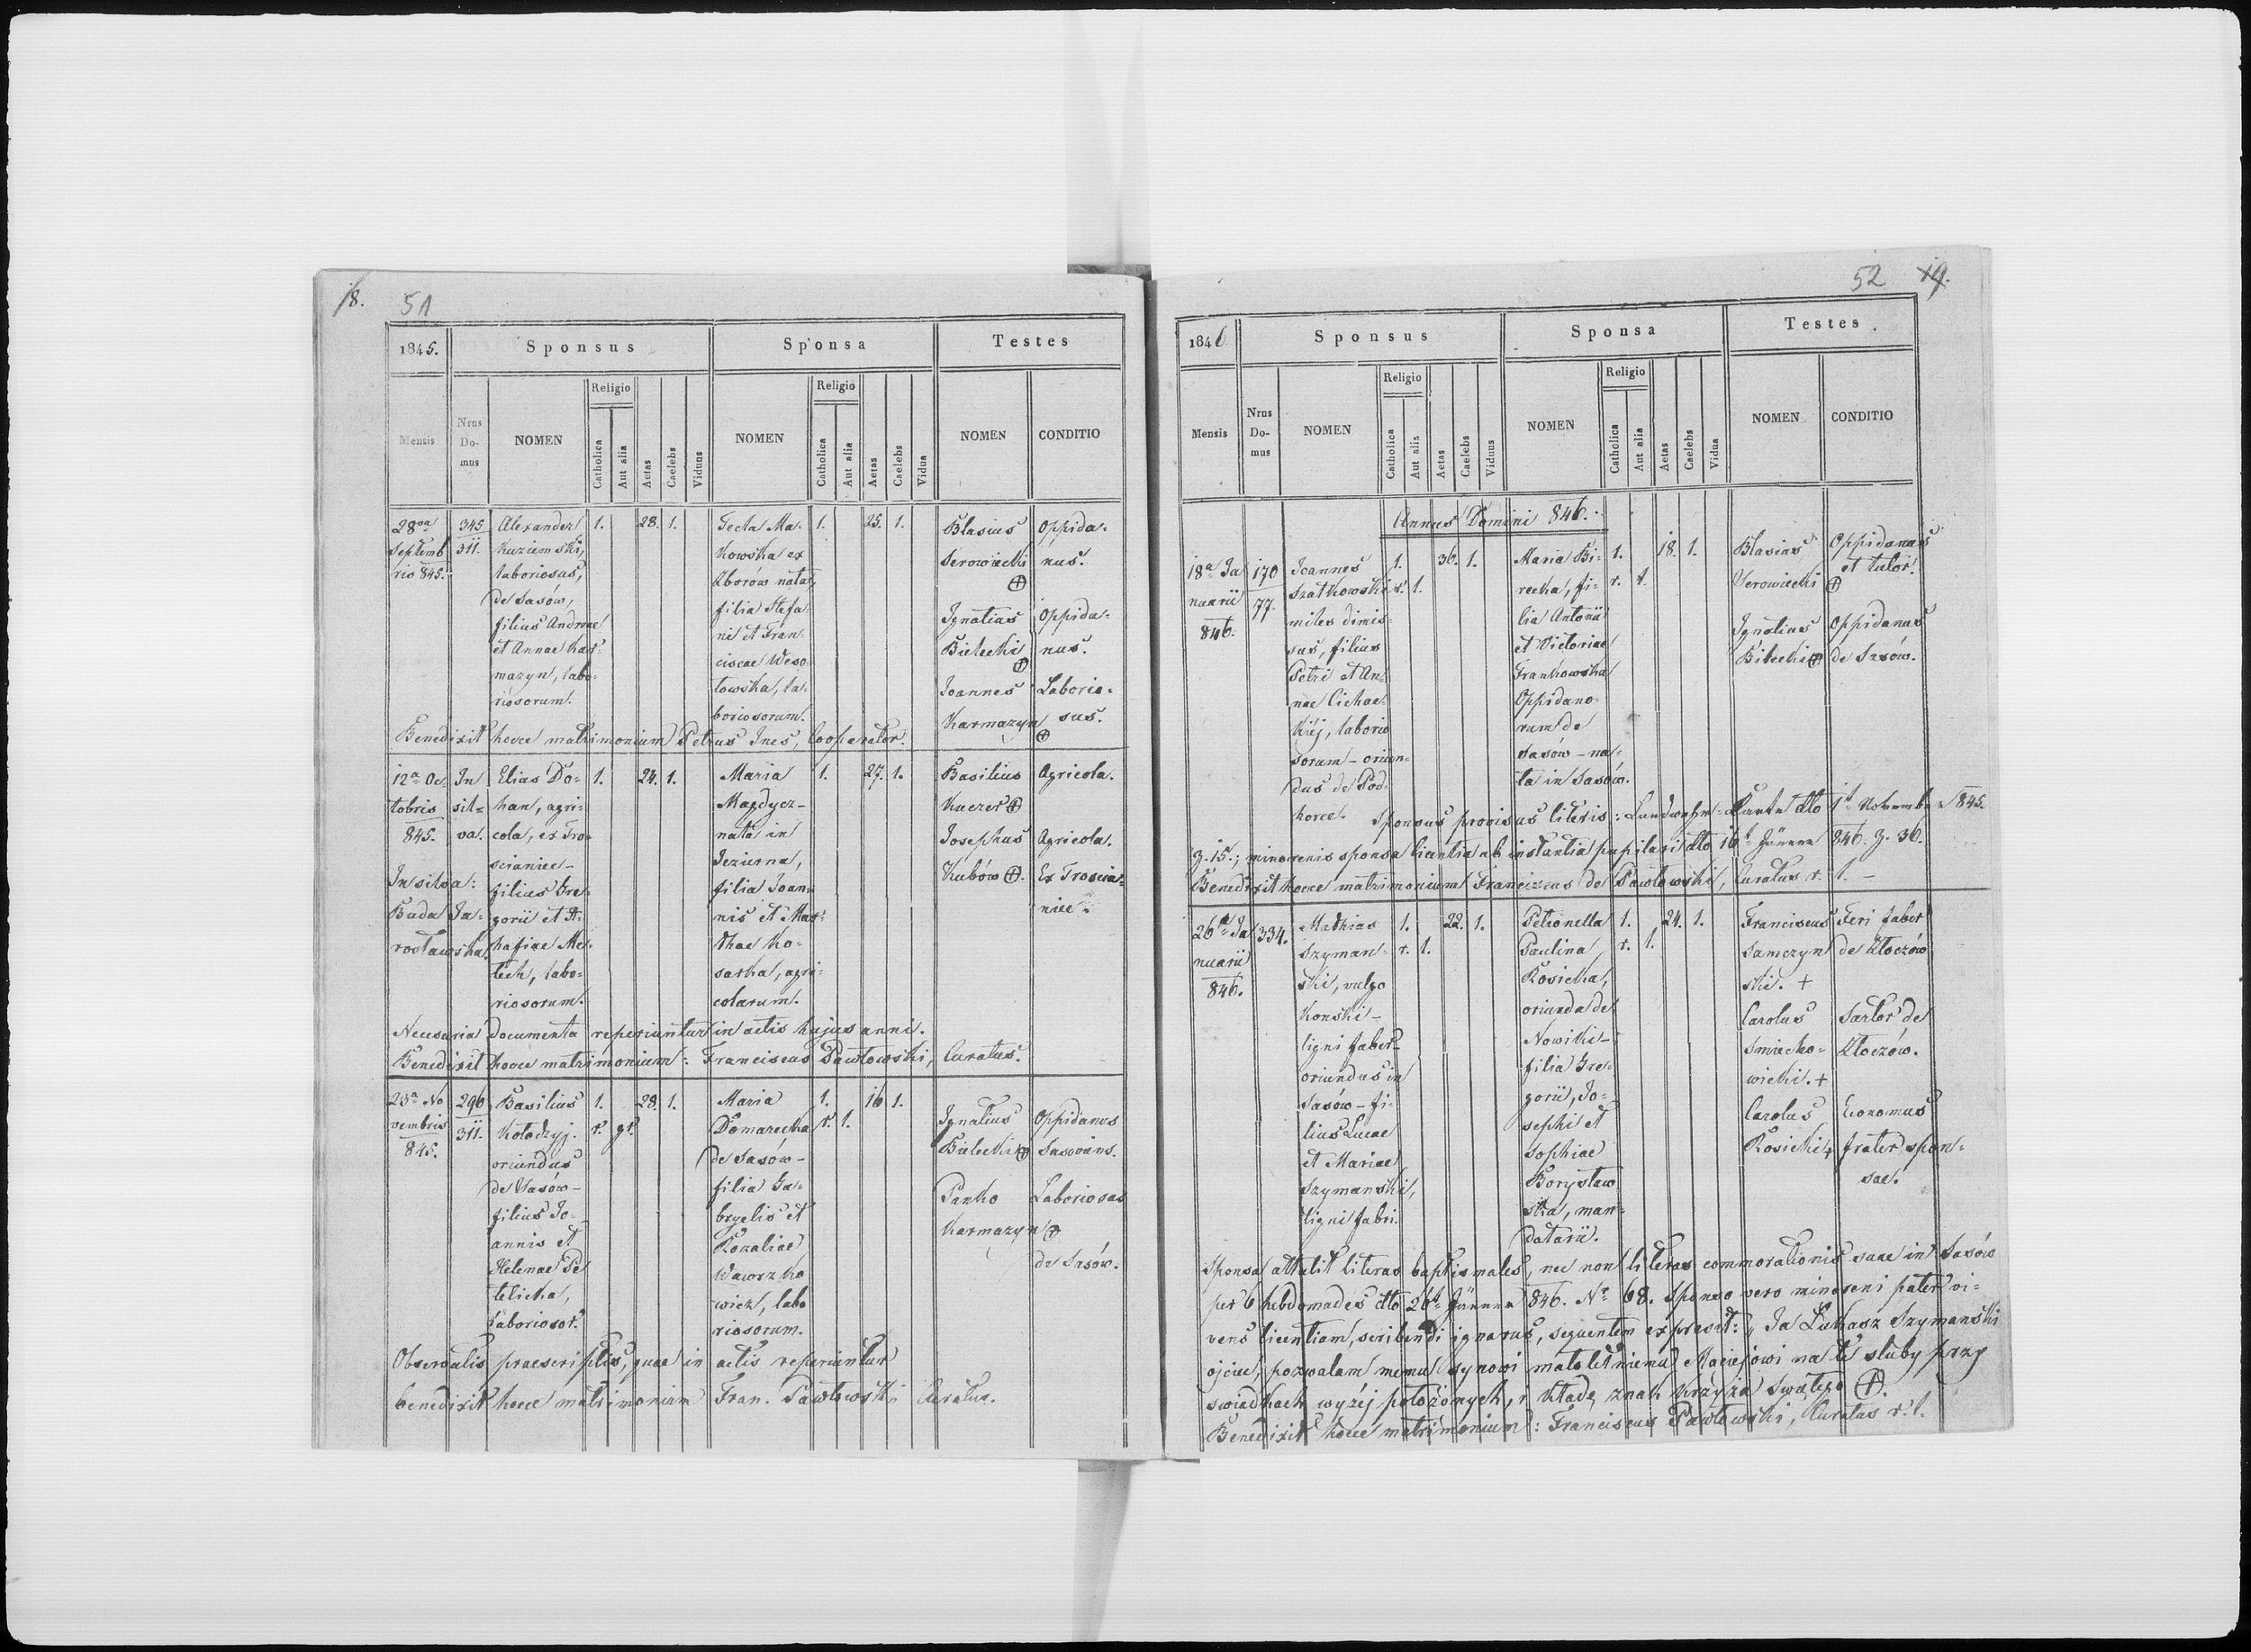 18. 51
1845. Sponsus Sponsa Testes
Mensis Nrus Domus NOMEN Religio Catholica Aut alia Aetas Caelebs Viduus NOMEN Religio Catholica Aut alia Aetas Caelebs Vidua NOMEN CONDITIO
28va Septembris 845.
345
311.
Alexander
Kuziemski,
laboriosus,
de Sasów,
filius Andreae
et Annae Kar-
mazyn, labo-
riosorum.
1. 28. 1.
Tecla Ma-
kowska ex
Zborów nata,
filia Stefa-
ni et Fran-
ciscae Weso-
łowska, la-
boriosorum.
1. 25. 1.
Blasius Oppida-
Serowiecki nus.
Ignatius Oppida-
Bielecki nus.
Joannes Laborio-
Karmazyn sus.
Benedixit hocce matrimonium Petrus Ines, Cooperator.
12a Octobris 845.
In silva.
In silva:
Buda Ja-
rosławska
Elias Do-
han, agri-
cola, ex Tro-
scianiec -
filius Gre-
gorii et A-
hafiae Me-
lech, labo-
riosorum.
1. 24. 1.
Maria
Magdycz -
nata in
Jezierna,
filia Joan-
nis et Mar-
thae Ko-
sarka, agri-
colarum.
1. 27. 1.
Basilius Agricola.
Kuczer
Josephus Agricola.
Kubów Ex Troscia-
niec.
Necessaria documenta reperiuntur in actis hujus anni.
Benedixit hocce matrimonium: Franciscus Pawłowski, Curatus.
23a No
vembris
845.
296
311.
Basilius
Kołodzyj.
oriundus
de Sasów -
filius Jo-
annis et
Helenae Pe
telicka,
laboriosor.
1. 28. 1.
r. gr.
Maria
Domarecka
de Sasów -
filia Ga-
bryelis et
Rozaliae
Wawrzko
wicz, labo
riosorum.
1. 16 1.
r. l.
Ignatius Oppidanus
Bielecki Sasovians.
Panko Laboriosus
Karmazyn
de Sasów.
Observatis praescriptis, quae in actis reperiuntur
benedixit hocce matrimonium Fran. Pawłowski Curatus.
52 19.
1846 Sponsus Sponsa Testes
Mensis Nrus Domus NOMEN Religio Catholica Aut alia Aetas Caelebs Viduus NOMEN Religio Catholica Aut alia Aetas Caelebs Vidua NOMEN CONDITIO
Annus Domini 846.
18a Ja
nuarii
846.
170
77.
Joannes
Szatkowski
miles dimis-
sus, filius
Petri et An-
nae Cichoc-
kiej, laborio
sorum - oriun-
dus de Pod-
horce.
1. 36. 1.
r. l.
Maria Bi-
recka, fi-
lia Antonii
et Victoriae
Frankowska
Oppidano-
rum de
Sasów - na-
ta in Sasów.
1. 18. 1.
r. l.
Blasius Oppidanus
Serowiecki et tutor.
Ignatius Oppidanus
Bilecki de Sasów.
Sponsus provisus literis: dto 1t November 845.
Z. 15.; minorenis sponsa licentia ab instantia pupilari dto 16t Jänner 846. Z. 36.
Benedixit hocce matrimonium Franciscus de Pawłowski, Curatus r. l. -
26a Ja
nuarii
846.
334.
Mathias
Szyman-
ski, vulgo
Konski -
ligni faber -
oriundus in
Sasów - fi-
lius Lucae
et Mariae
Szymanski,
ligni fabri.
1. 22. 1.
r. l.
Petronella
Paulina
Rosicka,
oriunda de
Nowiki -
filia Gre-
gorii, Jo-
sephi et
Sophiae
Borysław
ska, man-
datarii.
1. 24. 1.
r. l.
Franciscus Feri faber
Samczyn de Złoczów
ski. +
Carolus Sartor de
Smiecho- Złoczów.
wicki. +
Carolus Economus
Rosicki + frater spon-
sae.
Sponsa attulit literas baptismales, nec non literas commorationis suae in Sasów
per 6 hebdomades dto 26t Jänner 846. No 68. Sponso vero minoreni pater vi-
vens licentiam, scribendi ignarus, sequentem expressit: „Ja Łukasz Szymanski
ojciec, pozwalam memu synowi małoletniemu Maciejowi na te sluby przy
swiadkach wyżej położonych, i kładę znak krzyża swiętego +.
Benedixit hocce matrimonium: Franciscus Pawłowski, Curatus r. l.